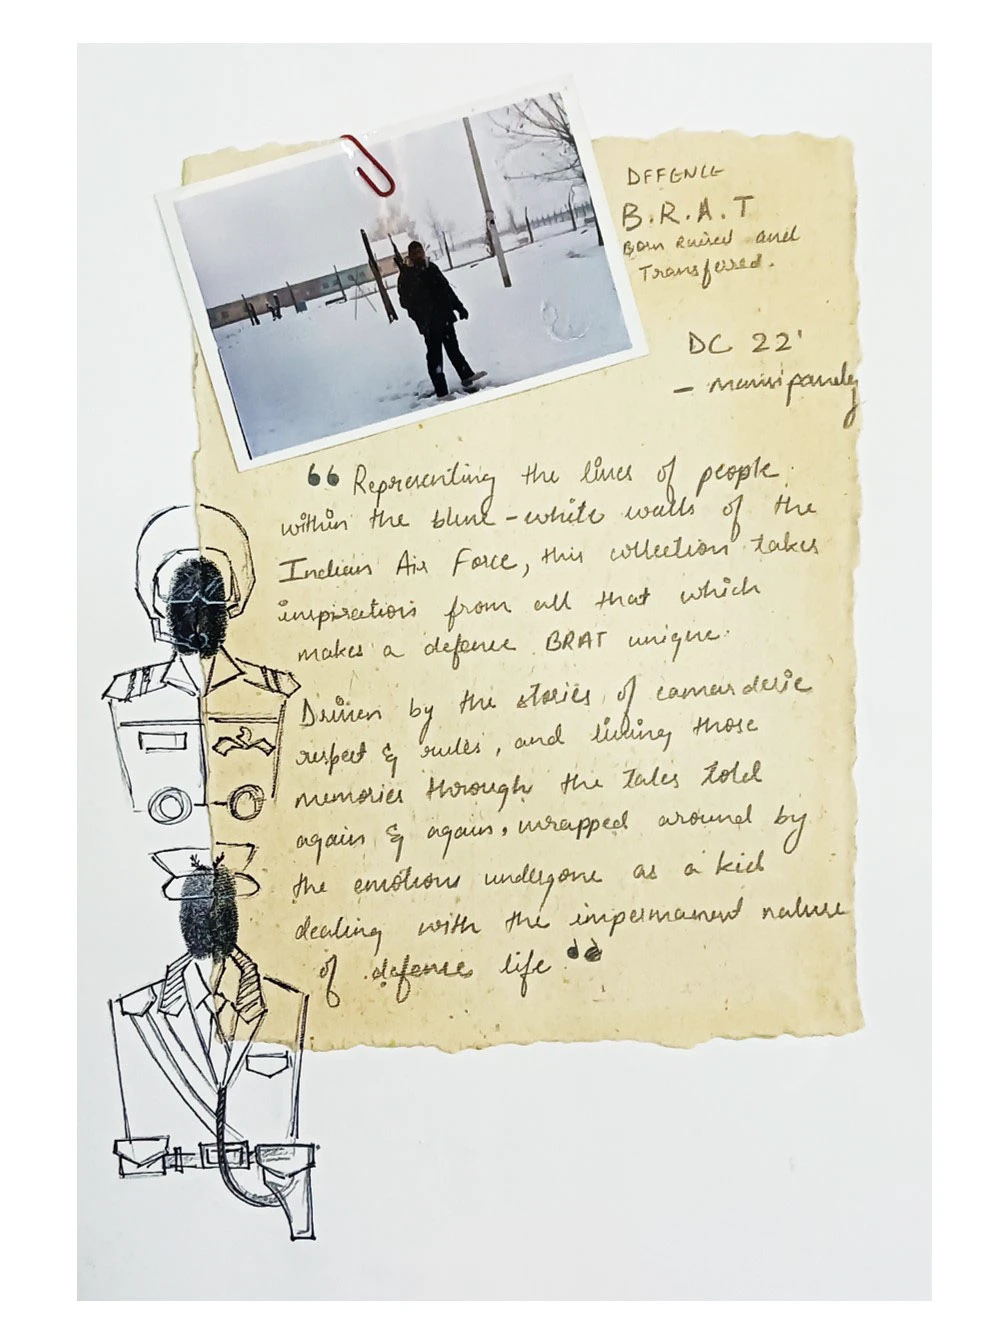 DEFENCE
B.R.A.T
Born Raised and
Transferred.
DC 22'
“ Representing the lives of people
within the blue-white walls of the
Indian Air Force, this collection takes
inspiration from all that which
makes a defence BRAT unique.
Driven by the stories of camaraderie
respect & rules, and living those
memories through the tales told
again & again, wrapped around by
the emotions undergone as a kid
dealing with the impermanent nature
of defence life ”